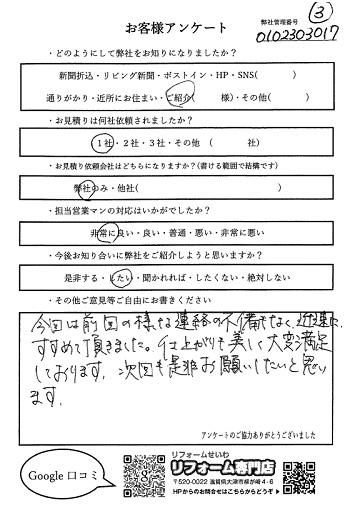 ③
お客様アンケート
弊社管理番号
0102303017
・どのようにして弊社をお知りになりましたか？
新聞折込・リビング新聞・ポストイン・HP・SNS(　　　)
通りがかり・近所にお住まい・ご紹介(　　　様)・その他(　　　)
・お見積りは何社依頼されましたか？
1社・2社・3社・その他　(　　　社)
・お見積り依頼会社はどちらになりますか？(書ける範囲で結構です)
弊社のみ・他社(　　　)
・担当営業マンの対応はいかがでしたか？
非常に良い・良い・普通・悪い・非常に悪い
・今後お知り合いに弊社をご紹介しようと思いますか？
是非する・したい・聞かれれば・したくない・絶対しない
・その他ご意見等ご自由にお書きください
今回は前回の様な連絡の不備もなく、迅速に
すすめて頂きました。仕上がりも美しく大変満足
しております。次回も是非お願いしたいと思い
ます。
アンケートのご協力ありがとうございました
Google 口コミ
リフォームせいわ
リフォーム専門店
〒520-0022 滋賀県大津市柳が崎4-6
HPからのお問合せはこちらからどうぞ